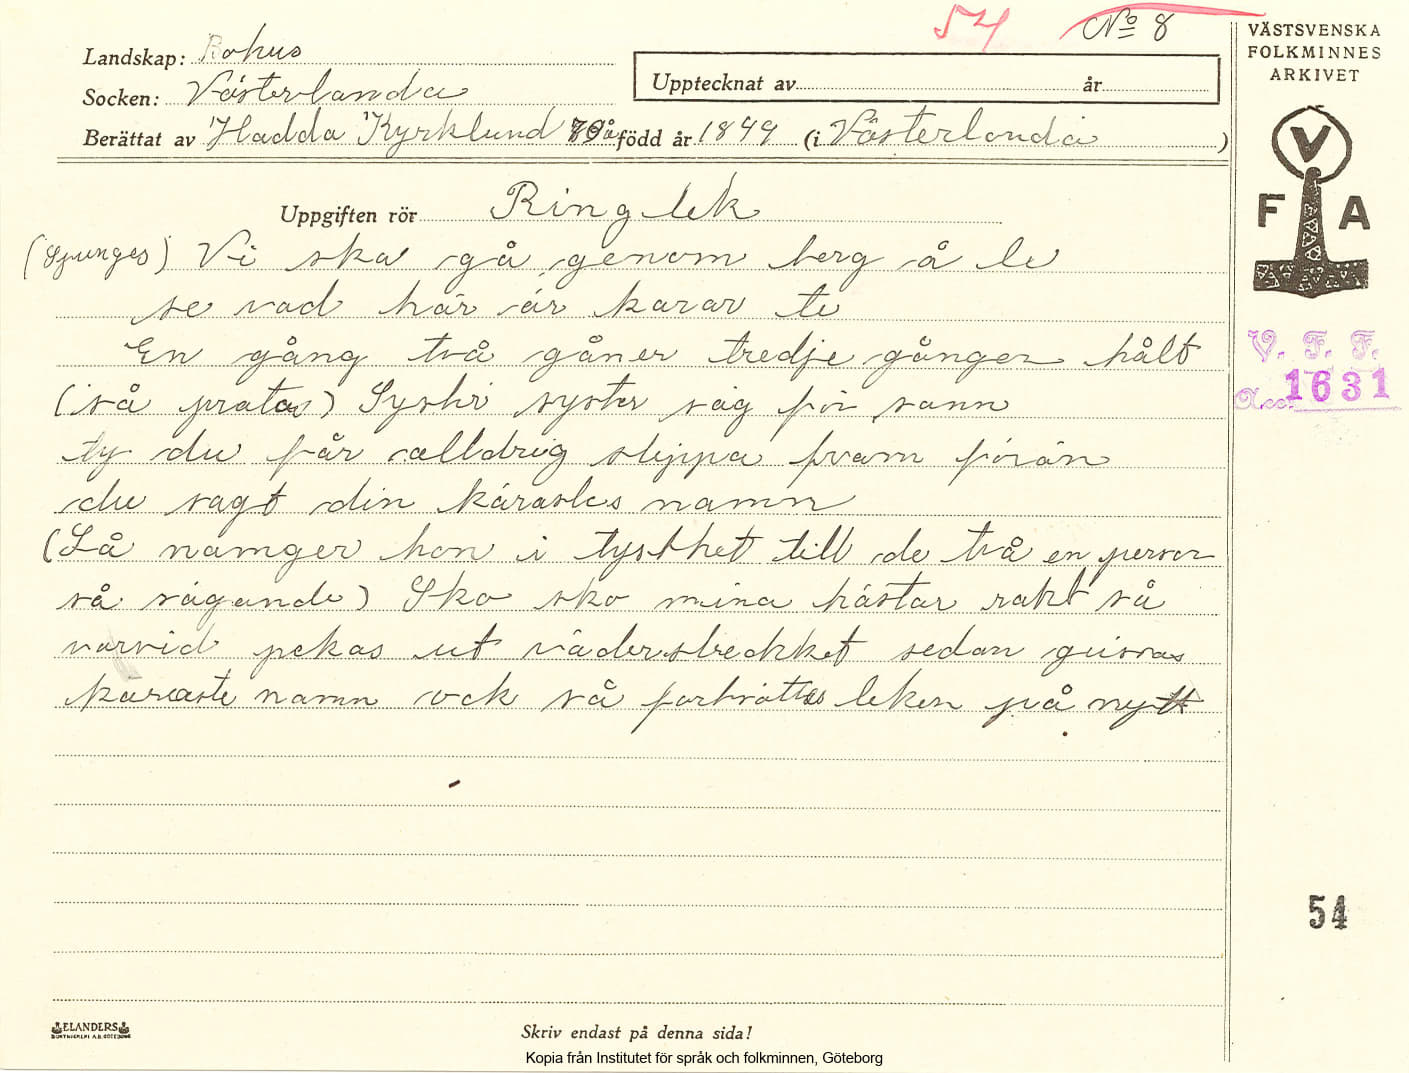 54 No 8
VÄSTSVENSKA
FOLKMINNES
ARKIVET
Landskap: Bohus
Socken: Västerlanda
Upptecknat av år
Berättat av Hadda Kyrklund född år 1849 (i Västerlanda)
V
F A
Uppgiften rör Ringlek
(Sjunges) Vi ska gå genom berg å le
se vad här är karar te
En gång två gåner tredje gången hålt
(så pratas) Syster syster säg för sann
ty du får alldrig slippa fram förän
du sagt din kärastes namn
(Så namger hon i tysthet till de två en person
så sägande) Sko sko mina hästar rakt så
varvid pekas ut väderstrecket sedan gissas
käraste namn ock så fortsättes leken på nytt
V. F. F.
Acc. 1631
54
ELANDERS
Skriv endast på denna sida!
Kopia från Institutet för språk och folkminnen, Göteborg